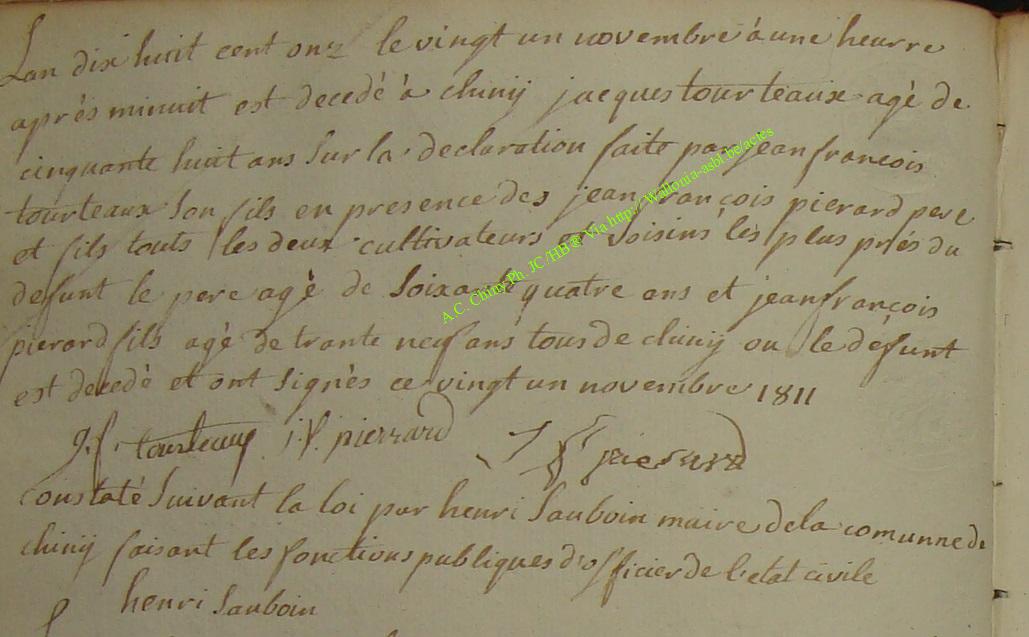 Lan dix huit cent onz le vingt un novembre à une heurre
après minuit est decedé à chiny jacques tourteaux agè de
cinquante huit ans Sur la declaration faite par jean françois
tourteaux Son fils en presence des jean françois pierard pere
et fils touts les deux cultivateurs et Voisins les plus près du
defunt le pere agè de Soixante quatre ans et jean françois
pierard fils agè de trante neuf ans tous de chiny ou le défunt
est decedè et ont Signès ce vingt un novembre 1811
j.f. tourteaux j.f. pierrard J f pierard
Constaté Suivant la loi par henri Sauboin maire de la comunne de
chiny faisant les fonctions publiques d'officier de l'etat civile
henri Sauboin
A.C. Chiny Ph. JC/HB® Via http://Wallonia-asbl.be/actes